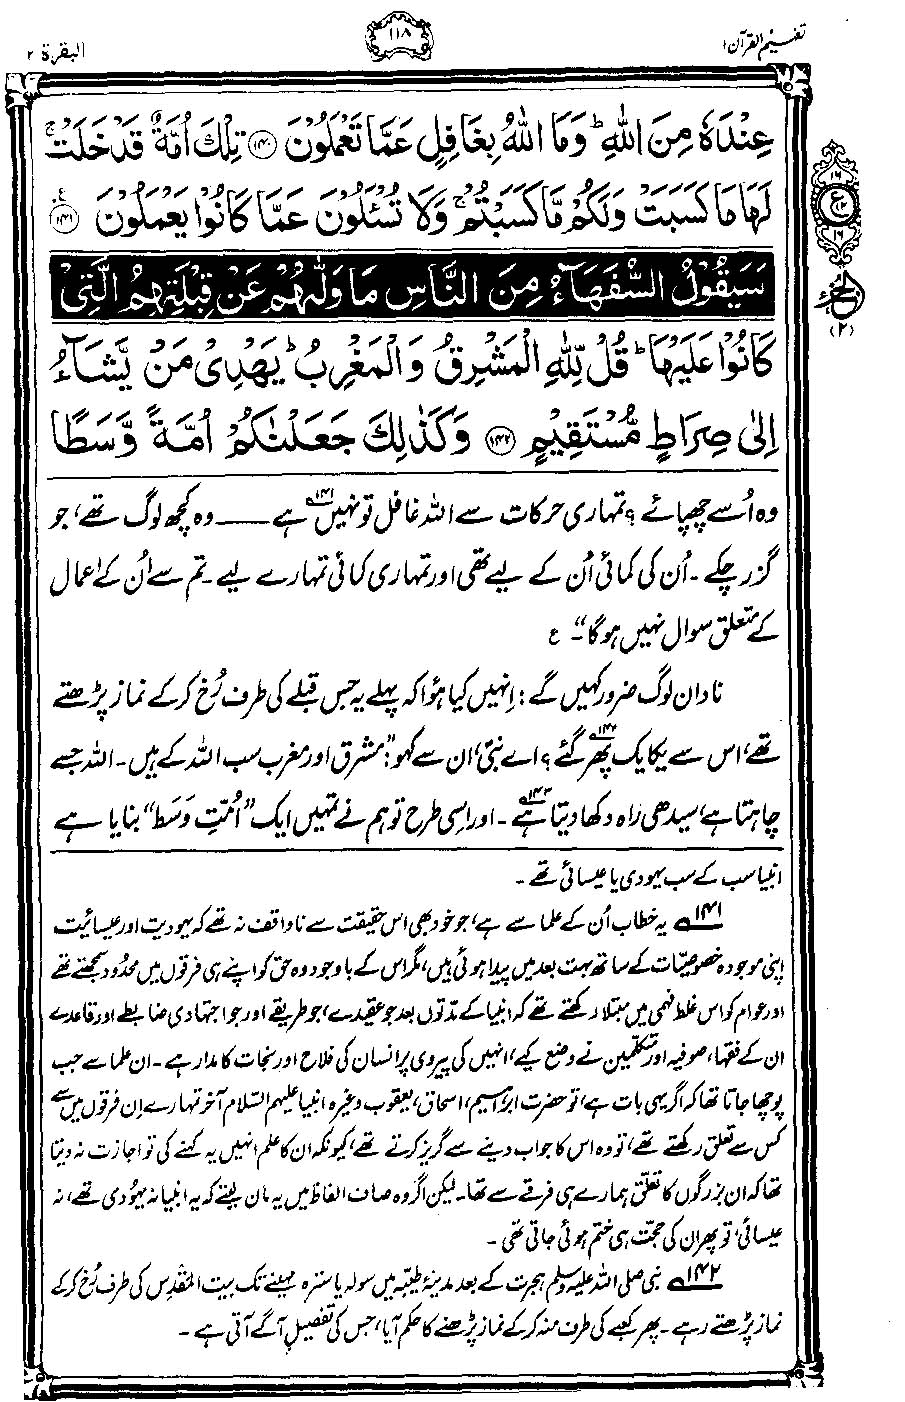 تفہیم القرآن ۱
۱۱۸
البقرۃ ۲
عِنْدَهٗ مِنَ اللّٰهِ ؕ وَمَا اللّٰهُ بِغَافِلٍ عَمَّا تَعْمَلُوْنَ ﴿۱۴۰﴾ تِلْكَ اُمَّةٌ قَدْ خَلَتْ ۚ
لَهَا مَا كَسَبَتْ وَلَكُمْ مَّا كَسَبْتُمْ ۚ وَلَا تُسْـَٔلُوْنَ عَمَّا كَانُوْا يَعْمَلُوْنَ ﴿۱۴۱﴾ ع
سَيَقُوْلُ السُّفَهَآءُ مِنَ النَّاسِ مَا وَلّٰىهُمْ عَنْ قِبْلَتِهِمُ الَّتِىْ
كَانُوْا عَلَيْهَا ؕ قُلْ لِّلّٰهِ الْمَشْرِقُ وَالْمَغْرِبُ ؕ يَهْدِىْ مَنْ يَّشَآءُ
اِلٰى صِرَاطٍ مُّسْتَقِيْمٍ ﴿۱۴۲﴾ وَكَذٰلِكَ جَعَلْنٰكُمْ اُمَّةً وَّسَطًا
۱۶
ع
۱۶
الجزء
(۲)
وہ اُسے چھپائے؟ تمہاری حرکات سے اللہ غافل تو نہیں ہے۱۴۱ ــــ وہ کچھ لوگ تھے، جو
گزر چکے۔ اُن کی کمائی اُن کے لیے تھی اور تمہاری کمائی تمہارے لیے۔ تم سے اُن کے اعمال
کے متعلق سوال نہیں ہوگا“۔ ع
نادان لوگ ضرور کہیں گے : اِنہیں کیا ہوا کہ پہلے یہ جس قبلے کی طرف رُخ کر کے نماز پڑھتے
تھے، اس سے یکایک پھر گئے۱۴۲؟ اے نبیؐ، ان سے کہو: ”مشرق اور مغرب سب اللہ کے ہیں۔ اللہ جسے
چاہتا ہے، سیدھی راہ دکھا دیتا ہے۱۴۳۔ اور اِسی طرح تو ہم نے تمہیں ایک ”اُمّتِ وَسَط“ بنایا ہے
انبیا سب کے سب یہودی یا عیسائی تھے۔
۱۴۱ یہ خطاب اُن کے علما سے ہے، جو خود بھی اس حقیقت سے ناواقف نہ تھے کہ یہودیت اور عیسائیت
اپنی موجودہ خصوصیّات کے ساتھ بہت بعد میں پیدا ہوئی ہیں، مگر اس کے باوجود وہ حق کو اپنے ہی فرقوں میں محدُود سمجھتے تھے
اور عوام کو اس غلط فہمی میں مبتلا رکھتے تھے کہ انبیا کے مدّتوں بعد جو عقیدے، جو طریقے اور جو اجتہادی ضابطے اور قاعدے
ان کے فقہا، صوفیہ اور متکلّمین نے وضع کیے، انہیں کی پیروی پر انسان کی فلاح اور نجات کا مدار ہے۔ ان علما سے جب
پوچھا جاتا تھا کہ اگر یہی بات ہے، تو حضرت ابراہیم، اسحاق، یعقوب وغیرہ انبیا علیہم السّلام آخر تمہارے اِن فرقوں میں سے
کس سے تعلق رکھتے تھے، تو وہ اس کا جواب دینے سے گریز کرتے تھے، کیونکہ ان کا علم انہیں یہ کہنے کی تو اجازت نہ دیتا
تھا کہ ان بزرگوں کا تعلّق ہمارے ہی فرقے سے تھا۔ لیکن اگر وہ صاف الفاظ میں یہ مان لیتے کہ یہ انبیا نہ یہُودی تھے، نہ
عیسائی، تو پھر ان کی حجّت ہی ختم ہوئی جاتی تھی۔
۱۴۲ نبی صلی اللہ علیہ وسلم ہجرت کے بعد مدینۂ طیّبہ میں سولہ یا سترہ مہینے تک بیت المقدِس کی طرف رُخ کر کے
نماز پڑھتے رہے۔ پھر کعبے کی طرف منہ کر کے نماز پڑھنے کا حکم آیا، جس کی تفصیل آگے آتی ہے۔